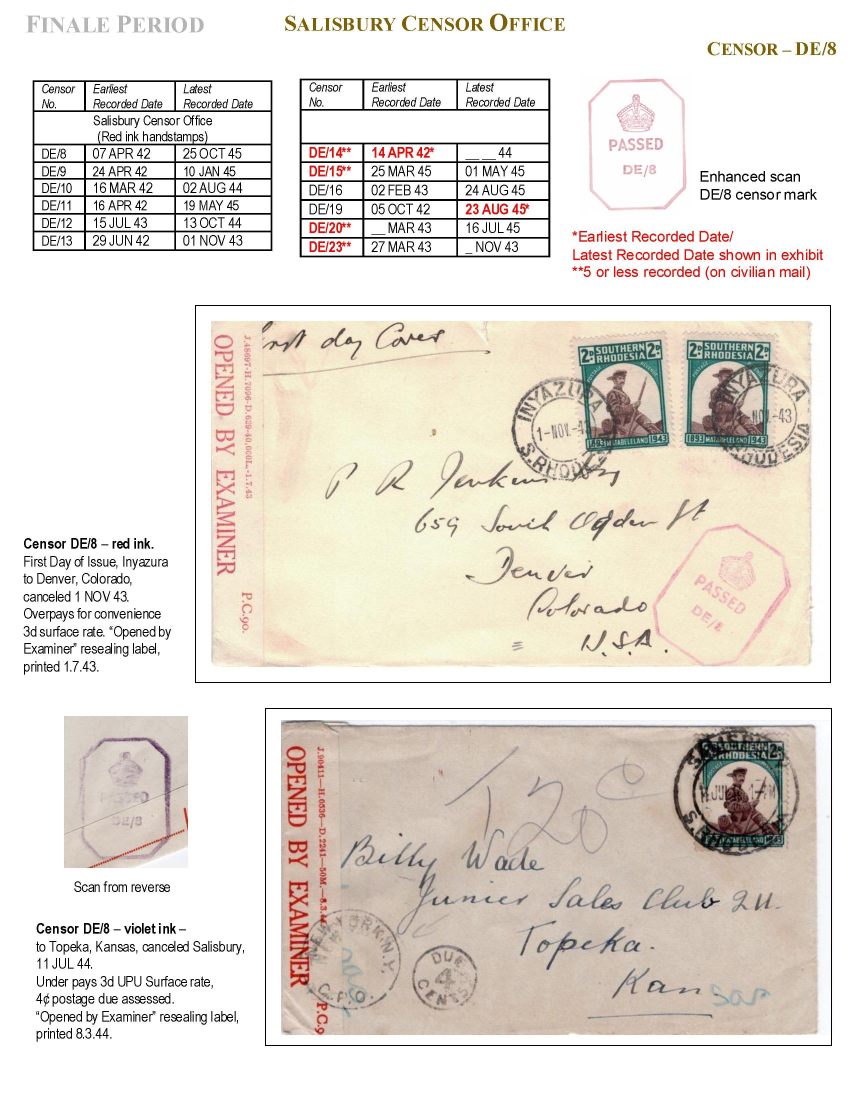 FINALE PERIOD
SALISBURY CENSOR OFFICE
CENSOR – DE/8
Censor No. Earliest Recorded Date Latest Recorded Date
Salisbury Censor Office
(Red ink handstamps)
DE/8 07 APR 42 25 OCT 45
DE/9 24 APR 42 10 JAN 45
DE/10 16 MAR 42 02 AUG 44
DE/11 16 APR 42 19 MAY 45
DE/12 15 JUL 43 13 OCT 44
DE/13 29 JUN 42 01 NOV 43
Censor No. Earliest Recorded Date Latest Recorded Date
DE/14** 14 APR 42* __ __ 44
DE/15** 25 MAR 45 01 MAY 45
DE/16 02 FEB 43 24 AUG 45
DE/19 05 OCT 42 23 AUG 45*
DE/20** __ MAR 43 16 JUL 45
DE/23** 27 MAR 43 _ NOV 43
PASSED
DE/8
Enhanced scan
DE/8 censor mark
*Earliest Recorded Date/
Latest Recorded Date shown in exhibit
**5 or less recorded (on civilian mail)
First day Cover
J.48697-H.7096-D.629-40,000L.-1.7.43
OPENED BY EXAMINER
P.C.90.
2D SOUTHERN RHODESIA 2D
POSTAGE REVENUE
1893 MATABELELAND 1943
2D SOUTHERN RHODESIA 2D
1893 MATABELELAND 1943
INYAZURA
1-NOV.-43
S.RHODESIA
INYAZURA
NOV-43
RHODESIA
P R Jenkins Esq
659 South Ogden St
Denver
Colorado
U.S.A.
PASSED
DE/8
Censor DE/8 – red ink.
First Day of Issue, Inyazura
to Denver, Colorado,
canceled 1 NOV 43.
Overpays for convenience
3d surface rate. “Opened by
Examiner” resealing label,
printed 1.7.43.
PASSED
DE/8
Scan from reverse
Censor DE/8 – violet ink –
to Topeka, Kansas, canceled Salisbury,
11 JUL 44.
Under pays 3d UPU Surface rate,
4¢ postage due assessed.
“Opened by Examiner” resealing label,
printed 8.3.44.
J.90411—H.0836—D.2241—50M.—8.3.4
OPENED BY EXAMINER
P.C.9
SOUTHERN RHODESIA
T 20 c
Billy Wade
Junior Sales Club 211.
Topeka.
Kansas
NEW YORK, N.Y.
G.P.O.
DUE
4
CENTS